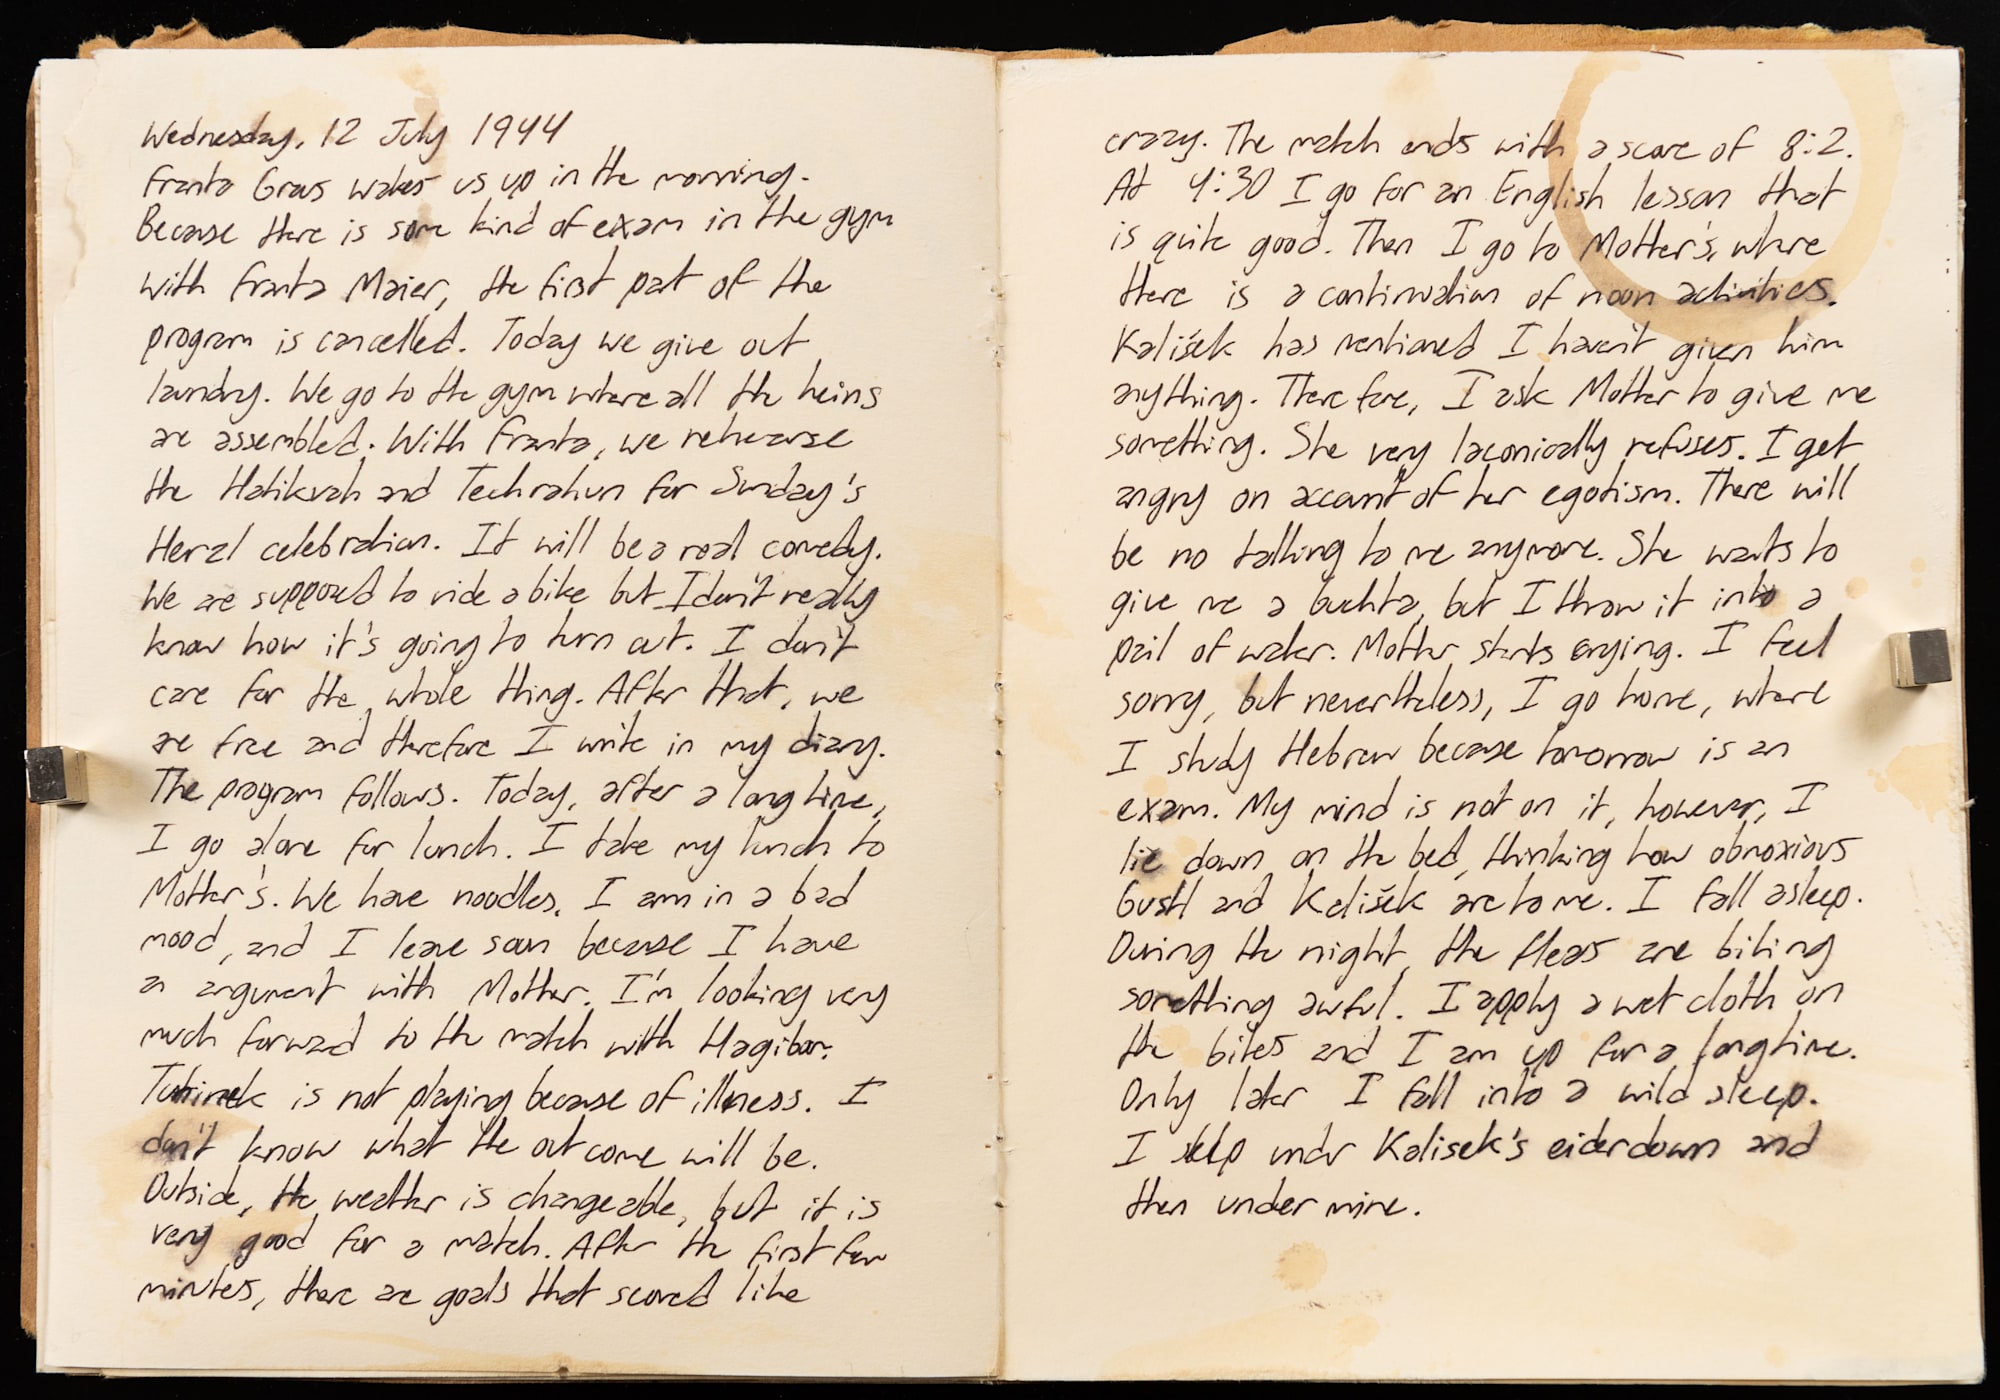 Wednesday, 12 July 1944
Franta Graus wakes us up in the morning.
Because there is some kind of exam in the gym
with Franta Maier, the first part of the
program is cancelled. Today we give out
laundry. We go to the gym where all the heims
are assembled. With Franta, we rehearse
the Hatikvah and Techrahun for Sunday's
Herzl celebration. It will be a real comedy.
We are supposed to ride a bike but I don't really
know how it's going to turn out. I don't
care for the whole thing. After that, we
are free and therefore I write in my diary.
The program follows. Today, after a long time,
I go alone for lunch. I take my lunch to
Mother's. We have noodles. I am in a bad
mood, and I leave soon because I have
an argument with Mother. I'm looking very
much forward to the match with Hagibor.
Tutinek is not playing because of illness. I
don't know what the outcome will be.
Outside, the weather is changeable, but it is
very good for a match. After the first few
minutes, there are goals that scored like
crazy. The match ends with a score of 8:2.
At 4:30 I go for an English lesson that
is quite good. Then I go to Mother's, where
there is a continuation of noon activities.
Kališek has mentioned I haven't given him
anything. Therefore, I ask Mother to give me
something. She very laconically refuses. I get
angry on account of her egotism. There will
be no talking to me anymore. She wants to
give me a buchta, but I throw it into a
pail of water. Mother starts crying. I feel
sorry, but nevertheless, I go home, where
I study Hebrew because tomorrow is an
exam. My mind is not on it, however, I
lie down on the bed, thinking how obnoxious
Gustl and Kališek are to me. I fall asleep.
During the night, the fleas are biting
something awful. I apply a wet cloth on
the bites and I am up for a long time.
Only later I fall into a wild sleep.
I sleep under Kalisek's eiderdown and
then under mine.